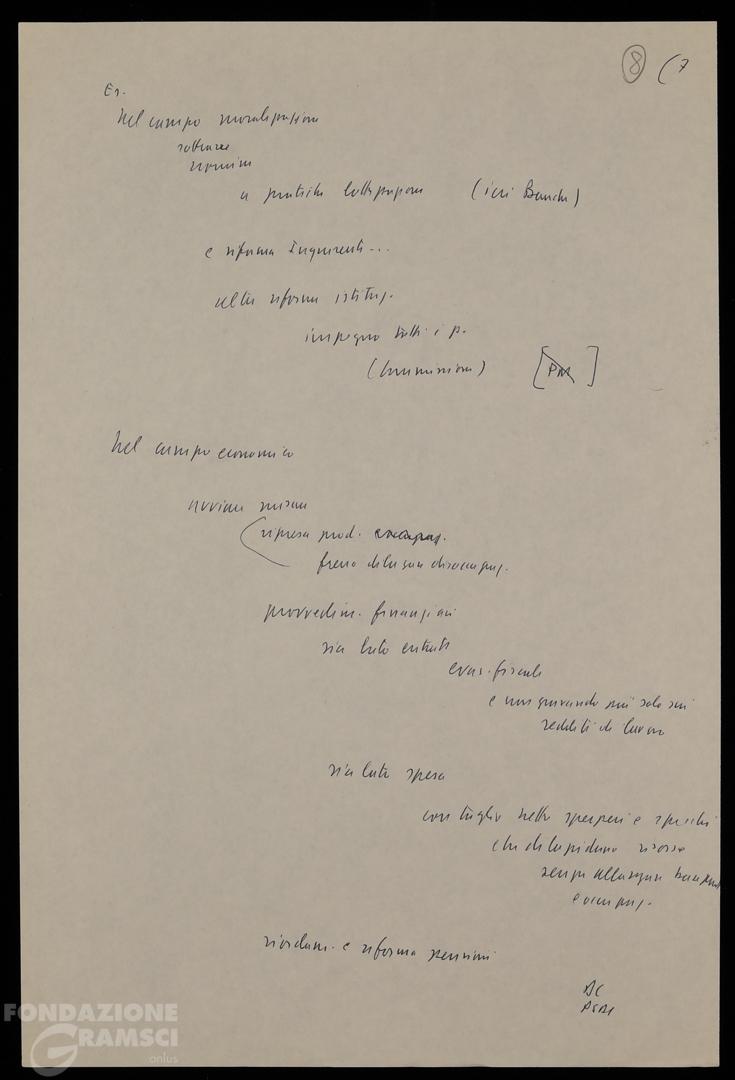 8 (7
Es.
Nel campo moralizzazione
sottrarre
nomine
a pratiche lottizzazione (ieri Banche)
e riforma Inquirente...
altre riforme istituz.
impegno tutti i p.
(Commissione) [PR]
Nel campo economico
avviare misure
ripresa prod.
freno disoccupaz.
provvedim. finanziari
sia lato entrate
evas. fiscale
e non gravando più solo sui
redditi di lavoro
sia lato spesa
con taglio netto sperperi e sprechi
che dilapidano risorse
senza allargare base prod.
e occupaz.
riordam. e riforma pensioni
DC
PSDI
FONDAZIONE
GRAMSCI
onlus